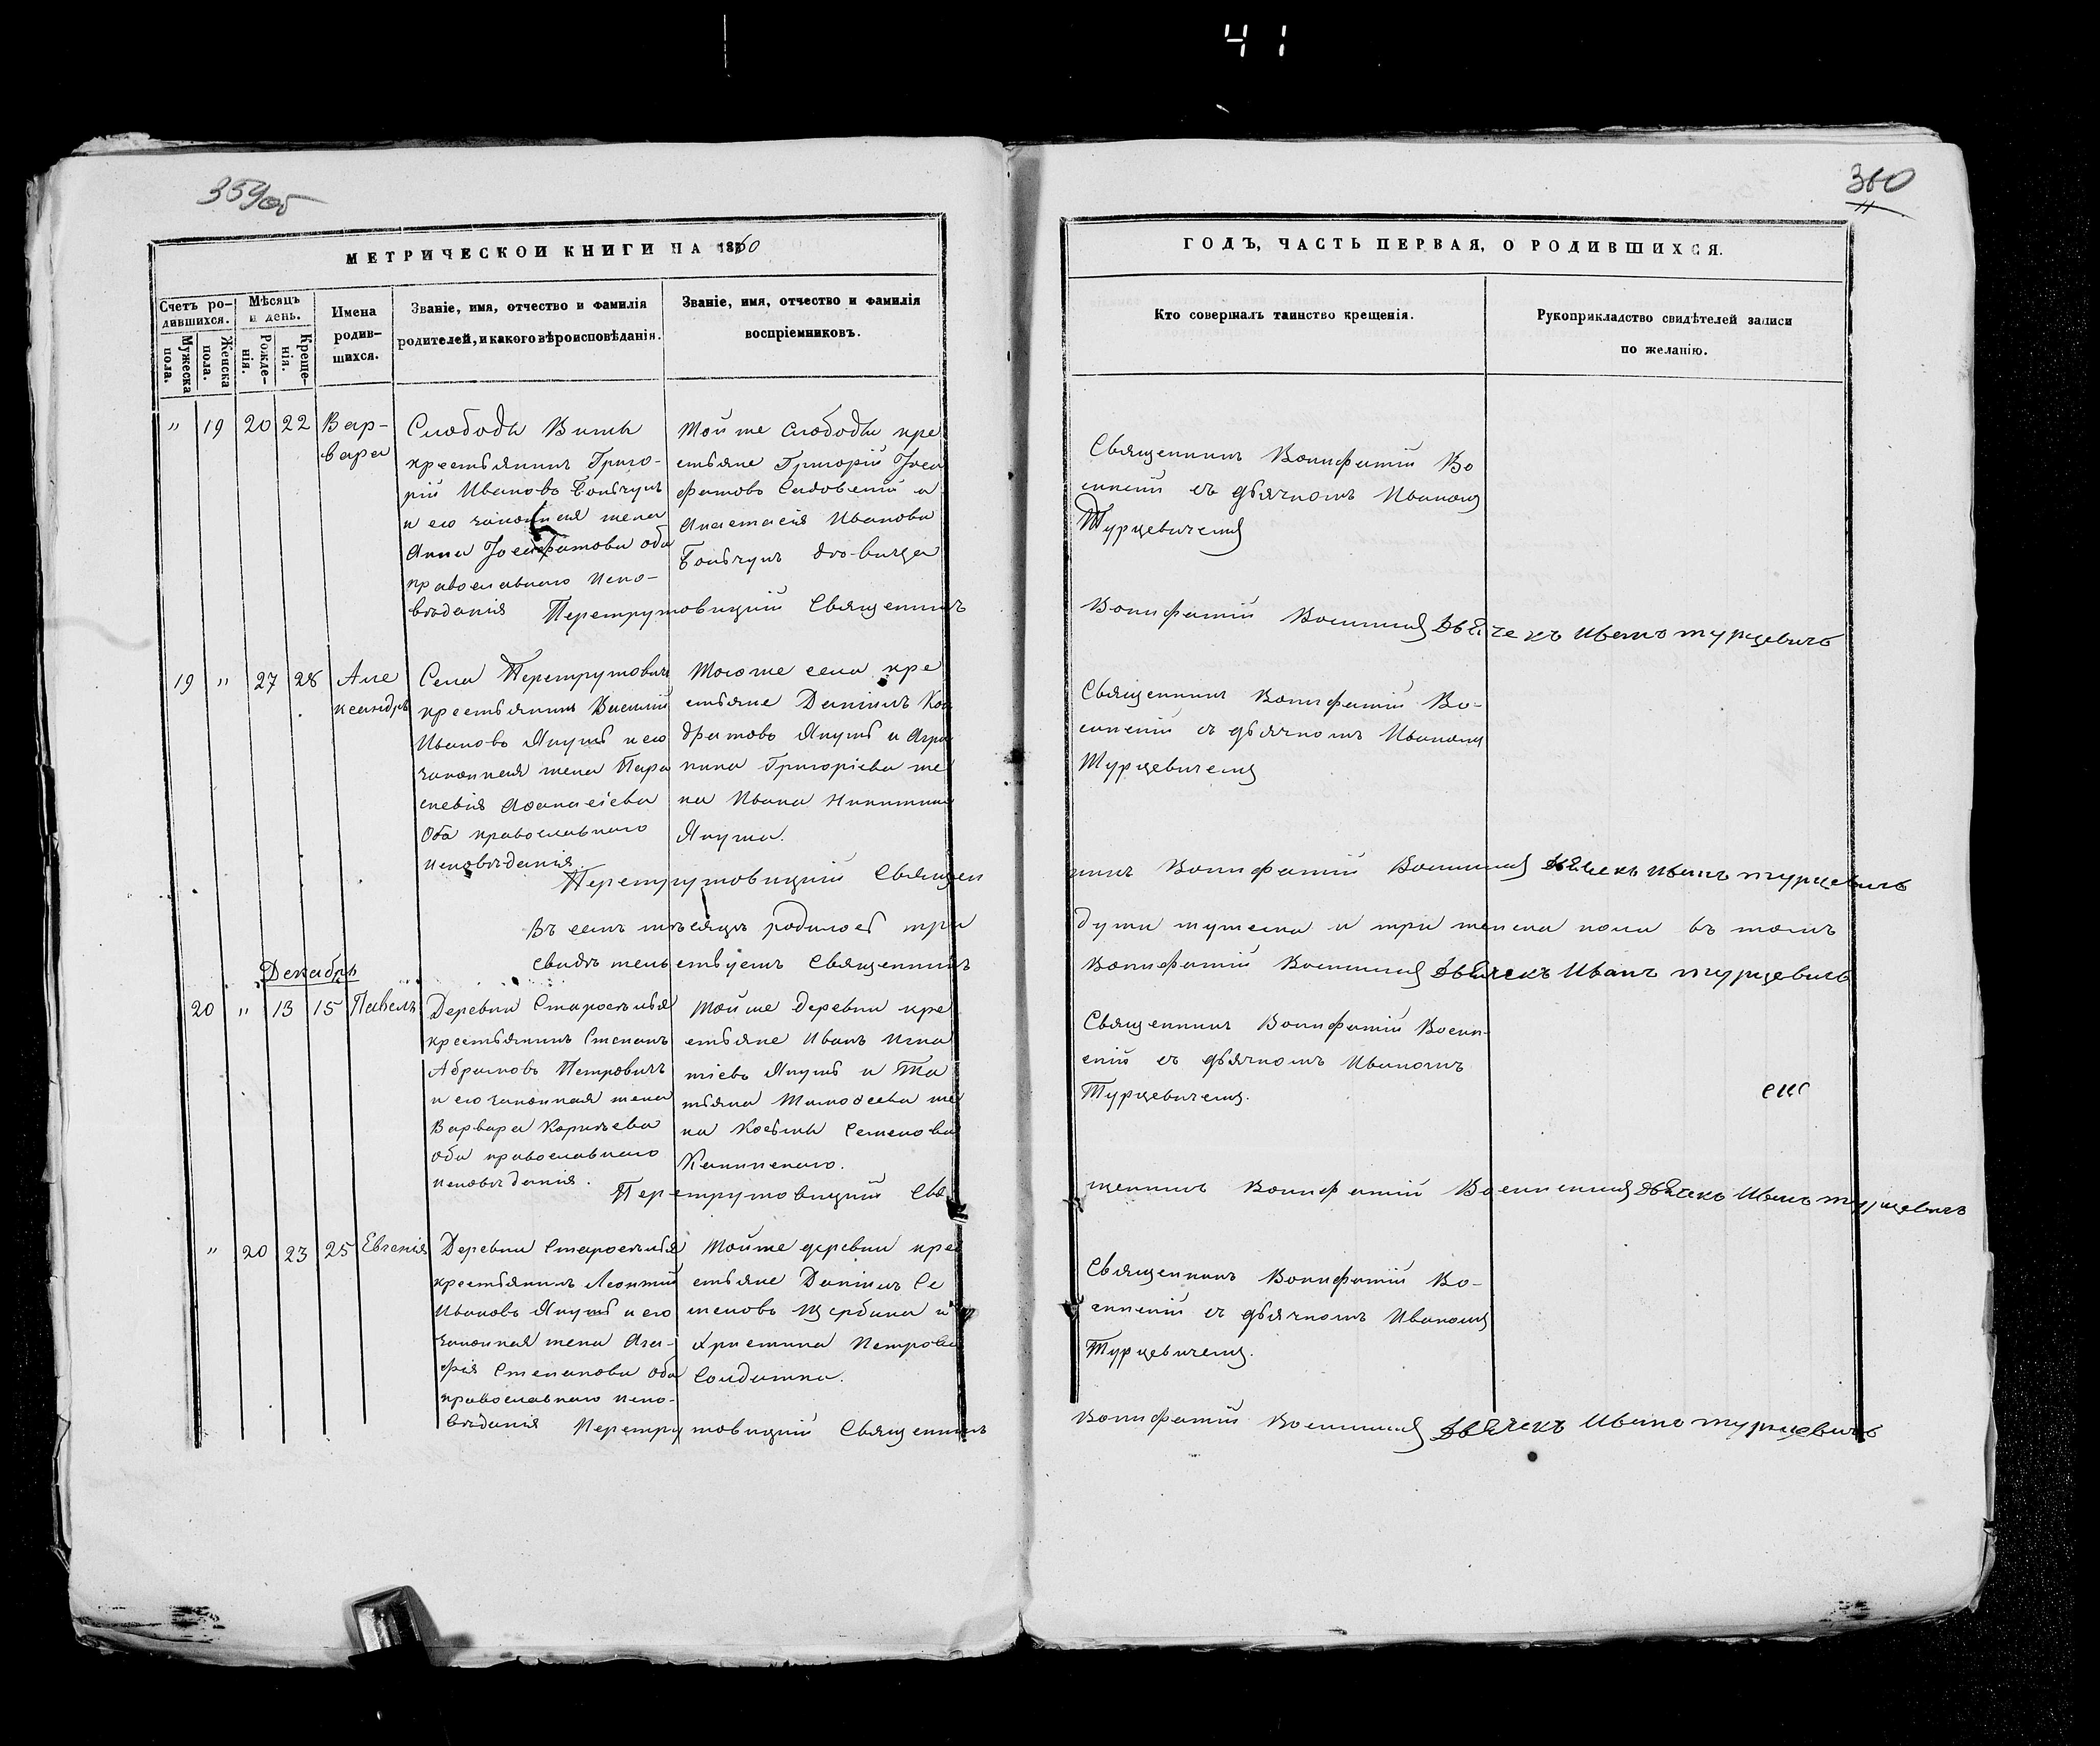 41
359об
360
МЕТРИЧЕСКОЙ КНИГИ НА 1860
ГОДЪ, ЧАСТЬ ПЕРВАЯ, О РОДИВШИХСЯ.
Счетъ родившихся.
Мужеска пола.
Женска пола.
Мѣсяцъ и день.
Рожденія.
Крещенія.
Имена родившихся.
Званіе, имя, отчество и фамилія
родителей, и какого вѣроисповѣданія.
Званіе, имя, отчество и фамилія
воспріемниковъ.
Кто совершалъ таинство крещенія.
Рукоприкладство свидѣтелей записи
по желанію.
" 19 20 22 Вар-
вара
Слободы
крестьянинъ Григо-
рій Ивановъ
и его законная жена
Анна Іосафатова оба
православнаго испо-
вѣданія
Той же слободы кре
стьяне Григорій Іоса
фатовъ Садовскій и
Анастасія Иванова
Священникъ Вонифатій Во
инскій съ дьячкомъ Иваномъ
Турцевичемъ
Перетрутовицкій Священникъ Вонифатій Дьячекъ Иванъ Турцевичъ
19 " 27 28 Але
ксандръ
Села Перетрутовичъ
крестьянинъ Василій
Ивановъ Якушъ и его
законная жена Пара
скевія Аѳанасіева
Оба православнаго
исповѣданія.
Того же села кре
стьяне Даніилъ Кон
дратовъ Якушъ и Агри
пина Григоріева же
на Ивана Никитина
Якуша.
Священникъ Вонифатій Во-
инскій съ дьячкомъ Иваномъ
Турцевичемъ
Перетрутовицкій Священ
никъ Вонифатій Дьячекъ Иванъ Турцевичъ
Въ семъ мѣсяцѣ родилось три
души мужеска и три женска пола въ томъ
свидѣтельствуетъ Священникъ
Вонифатій Дьячекъ Иванъ Турцевичъ
Декабрь
20 " 13 15 Павелъ
Деревни Старосѣлья
крестьянинъ Степанъ
Абрамовъ Петровичъ
и его законная жена
Варвара Корнѣева
оба православнаго
исповѣданія.
Той же деревни кре
стьяне Иванъ Игна
тіевъ Якушъ и Та
тьяна Тимоѳеева же
на Косьмы Семенова
Священникъ Вонифатій Воин-
скій съ дьячкомъ Иваномъ
Турцевичемъ.
Перетрутовицкій Свя
щенникъ Вонифатій Дьячекъ Иванъ Турцевичъ
" 20 23 25 Евгенія
Деревни Старосѣлья
крестьянинъ Леонтій
Ивановъ Якушъ и его
законная жена Ага-
фія Степанова оба
православнаго испо-
вѣданія
Той же деревни кре
стьяне Даніилъ Се
меновъ Щербина и
Христина Петрова
Солдатка.
Священникъ Вонифатій Во-
инскій съ дьячкомъ Иваномъ
Турцевичемъ.
Перетрутовицкій Священникъ
Вонифатій Дьячекъ Иванъ Турцевичъ